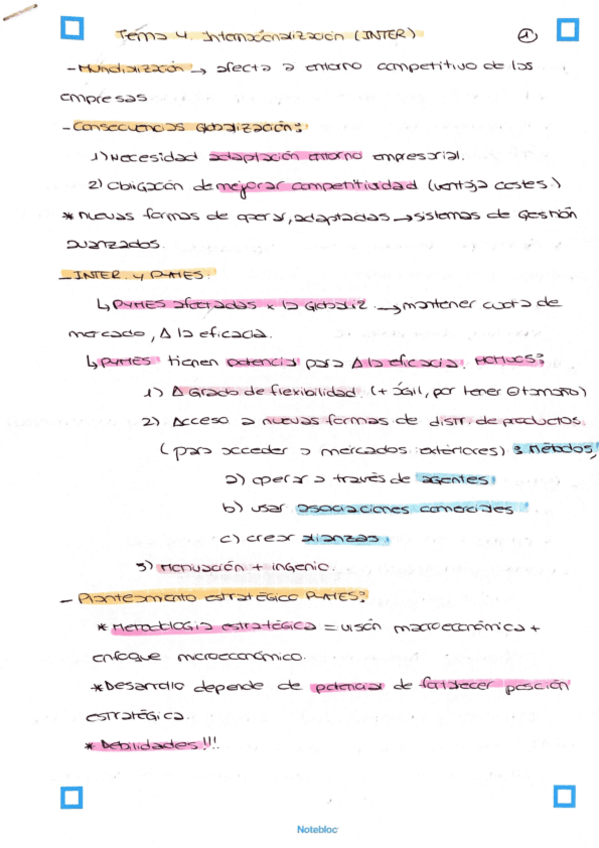 Tema 4. Internacionalización (INTER)
1
- Mundialización → afecta a entorno competitivo de las
empresas
- Consecuencias Globalización:
1) Necesidad adaptación entorno empresarial.
2) Obligación de mejorar competitividad (ventaja costes.)
* nuevas formas de operar, adaptadas → sistemas de gestión
avanzados.
- INTER. y PYMES:
↳ PYMES afectadas x la Globaliz. → mantener cuota de
mercado, Δ la eficacia.
↳ PYMES tienen potencial para Δ la eficacia. MOTIVOS:
1) Δ Grado de flexibilidad. (+ ágil, por tener ⊖ tamaño)
2) Acceso a nuevas formas de distr. de productos.
(para acceder a mercados exteriores) : Métodos
a) operar a través de agentes
b) usar asociaciones comerciales
c) crear alianzas.
3) Motivación + ingenio.
- Planteamiento estratégico PYMES:
* Metodología estratégica = visón macroeconómica +
enfoque microeconómico.
* Desarrollo depende de potencias de fortalecer posción
estratégica.
* Debilidades!!!
Notebloc